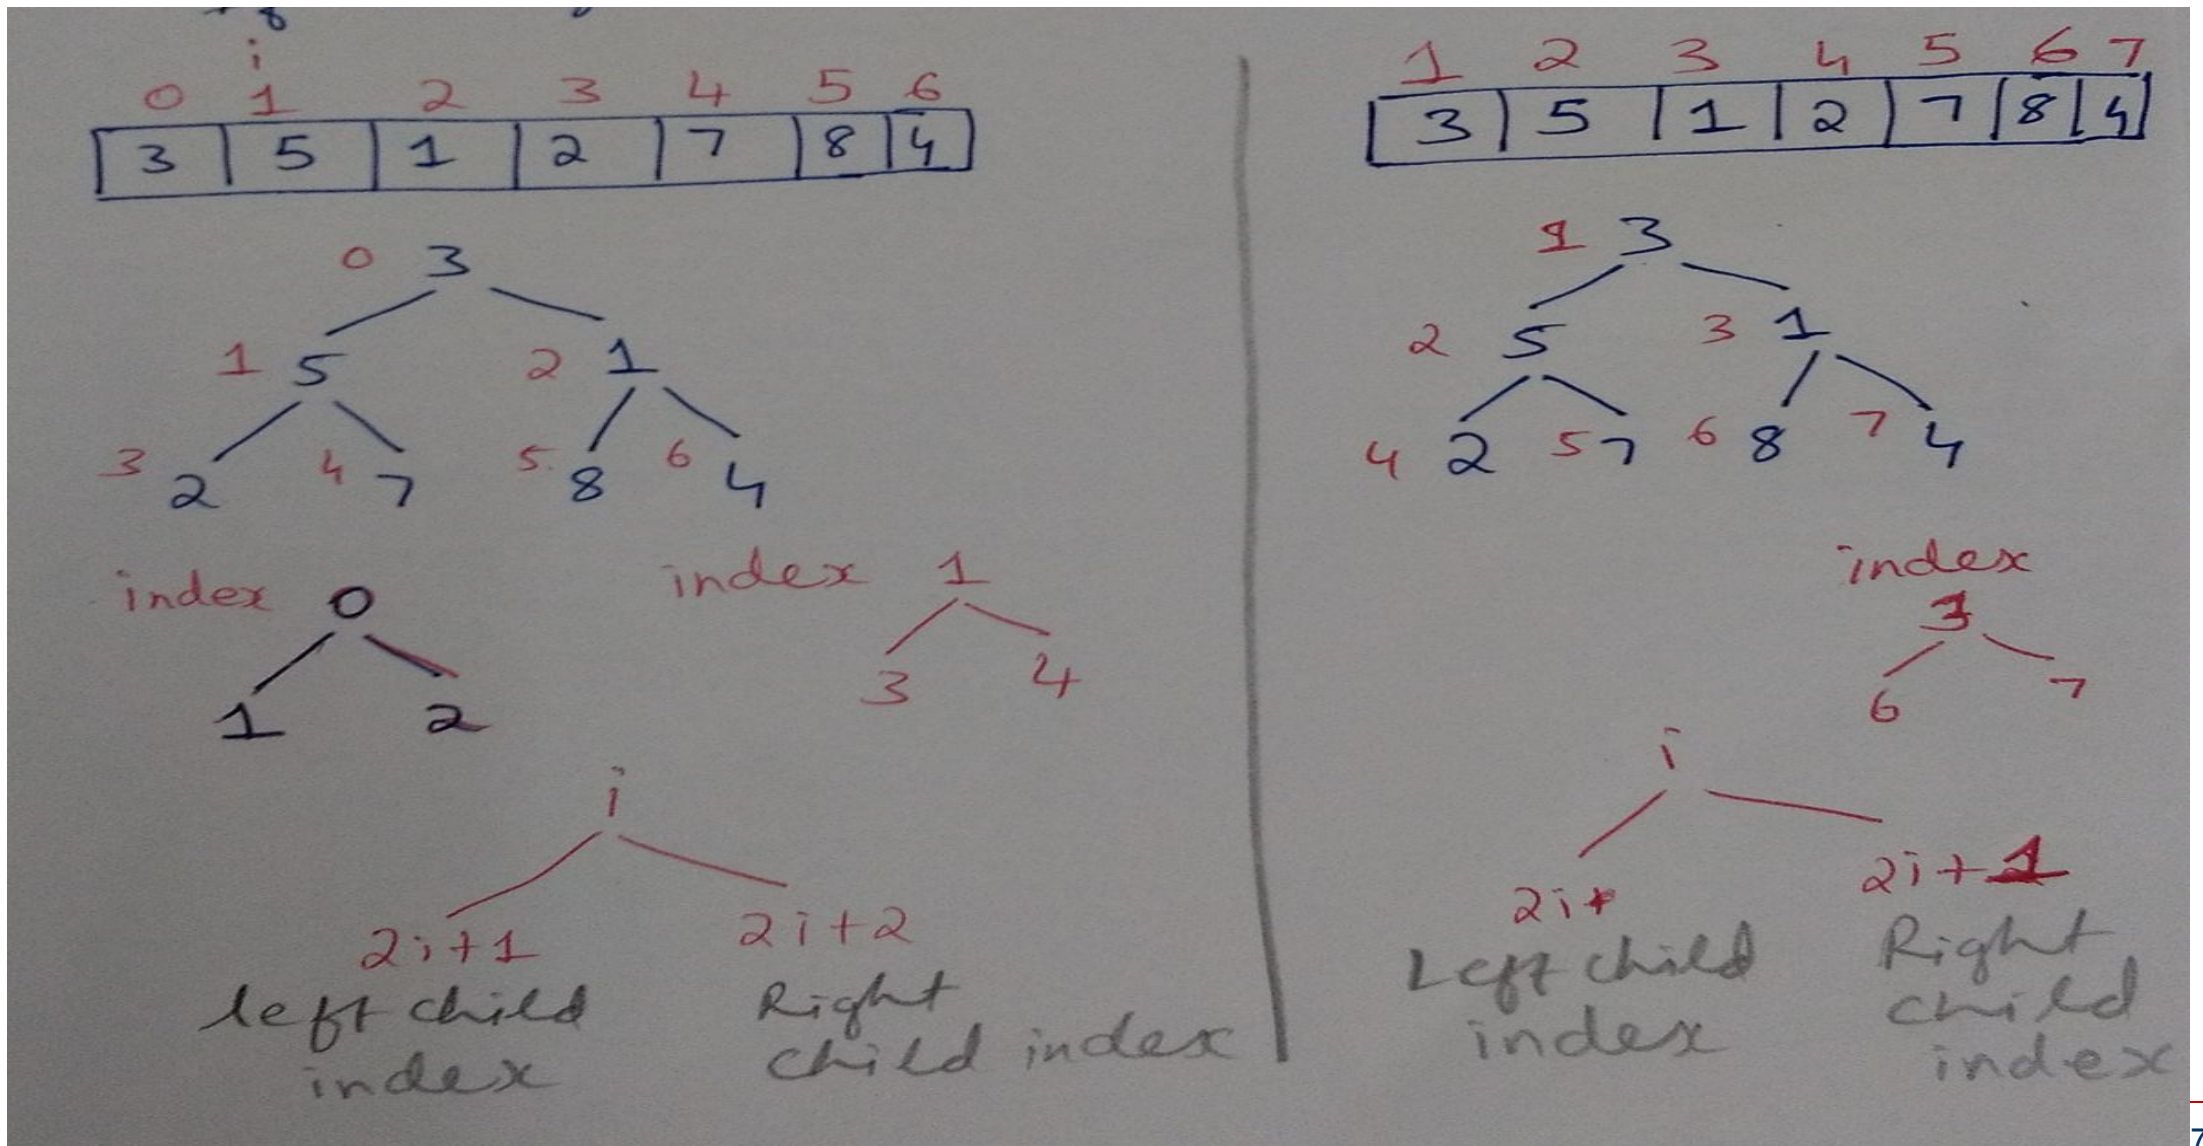 i
0 1 2 3 4 5 6
3 5 1 2 7 8 4
0 3
1 5 2 1
3 2 4 7 5 8 6 4
index 0
1 2
index 1
3 4
i
2i+1 2i+2
left child
index
Right
child index
1 2 3 4 5 6 7
3 5 1 2 7 8 4
1 3
2 5 3 1
4 2 5 7 6 8 7 4
index
3
6 7
i
2i 2i+1
Left child
index
Right
child
index
7